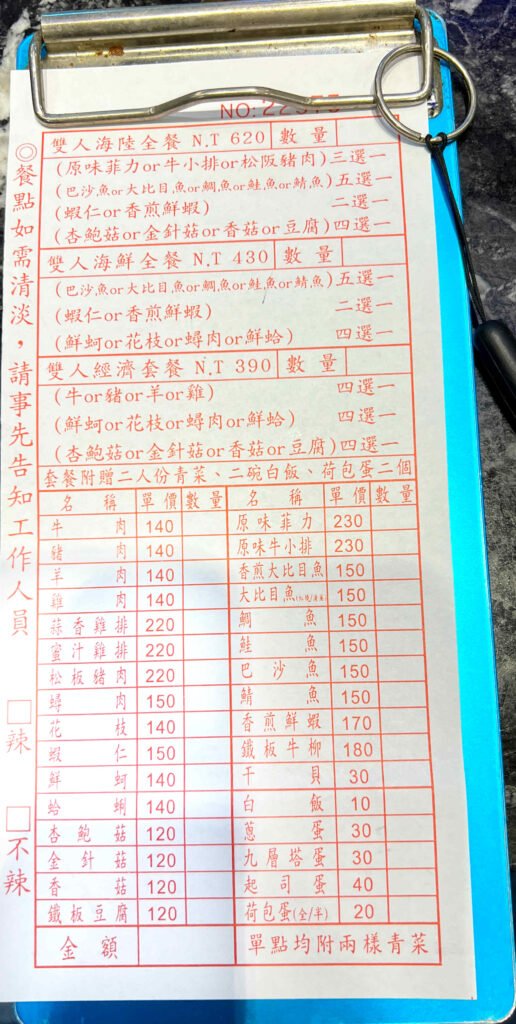 NO:
雙人海陸全餐 N.T 620 數量
(原味菲力or牛小排or松阪豬肉)三選一
(巴沙魚or大比目魚or鯛魚or鮭魚or鯖魚)五選一
(蝦仁or香煎鮮蝦) 二選一
(杏鮑菇or金針菇or香菇or豆腐)四選一
雙人海鮮全餐 N.T 430 數量
(巴沙魚or大比目魚or鯛魚or鮭魚or鯖魚)五選一
(蝦仁or香煎鮮蝦) 二選一
(鮮蚵or花枝or蟳肉or鮮蛤) 四選一
雙人經濟套餐 N.T 390 數量
(牛or豬or羊or雞) 四選一
(鮮蚵or花枝or蟳肉or鮮蛤) 四選一
(杏鮑菇or金針菇or香菇or豆腐)四選一
套餐附贈二人份青菜、二碗白飯、荷包蛋二個
名稱 單價 數量 名稱 單價 數量
牛肉 140 原味菲力 230
豬肉 140 原味牛小排 230
羊肉 140 香煎大比目魚 150
雞肉 140 大比目魚 150
蒜香雞排 220 鯛魚 150
蜜汁雞排 220 鮭魚 150
松板豬肉 220 巴沙魚 150
蟳肉 150 鯖魚 150
花枝 140 香煎鮮蝦 170
蝦仁 150 鐵板牛柳 180
鮮蚵 140 干貝 30
蛤蜊 140 白飯 10
杏鮑菇 120 蔥蛋 30
金針菇 120 九層塔蛋 30
香菇 120 起司蛋 40
鐵板豆腐 120 荷包蛋(全/半) 20
金額 單點均附兩樣青菜
◎餐點如需清淡，請事先告知工作人員
□辣 □不辣